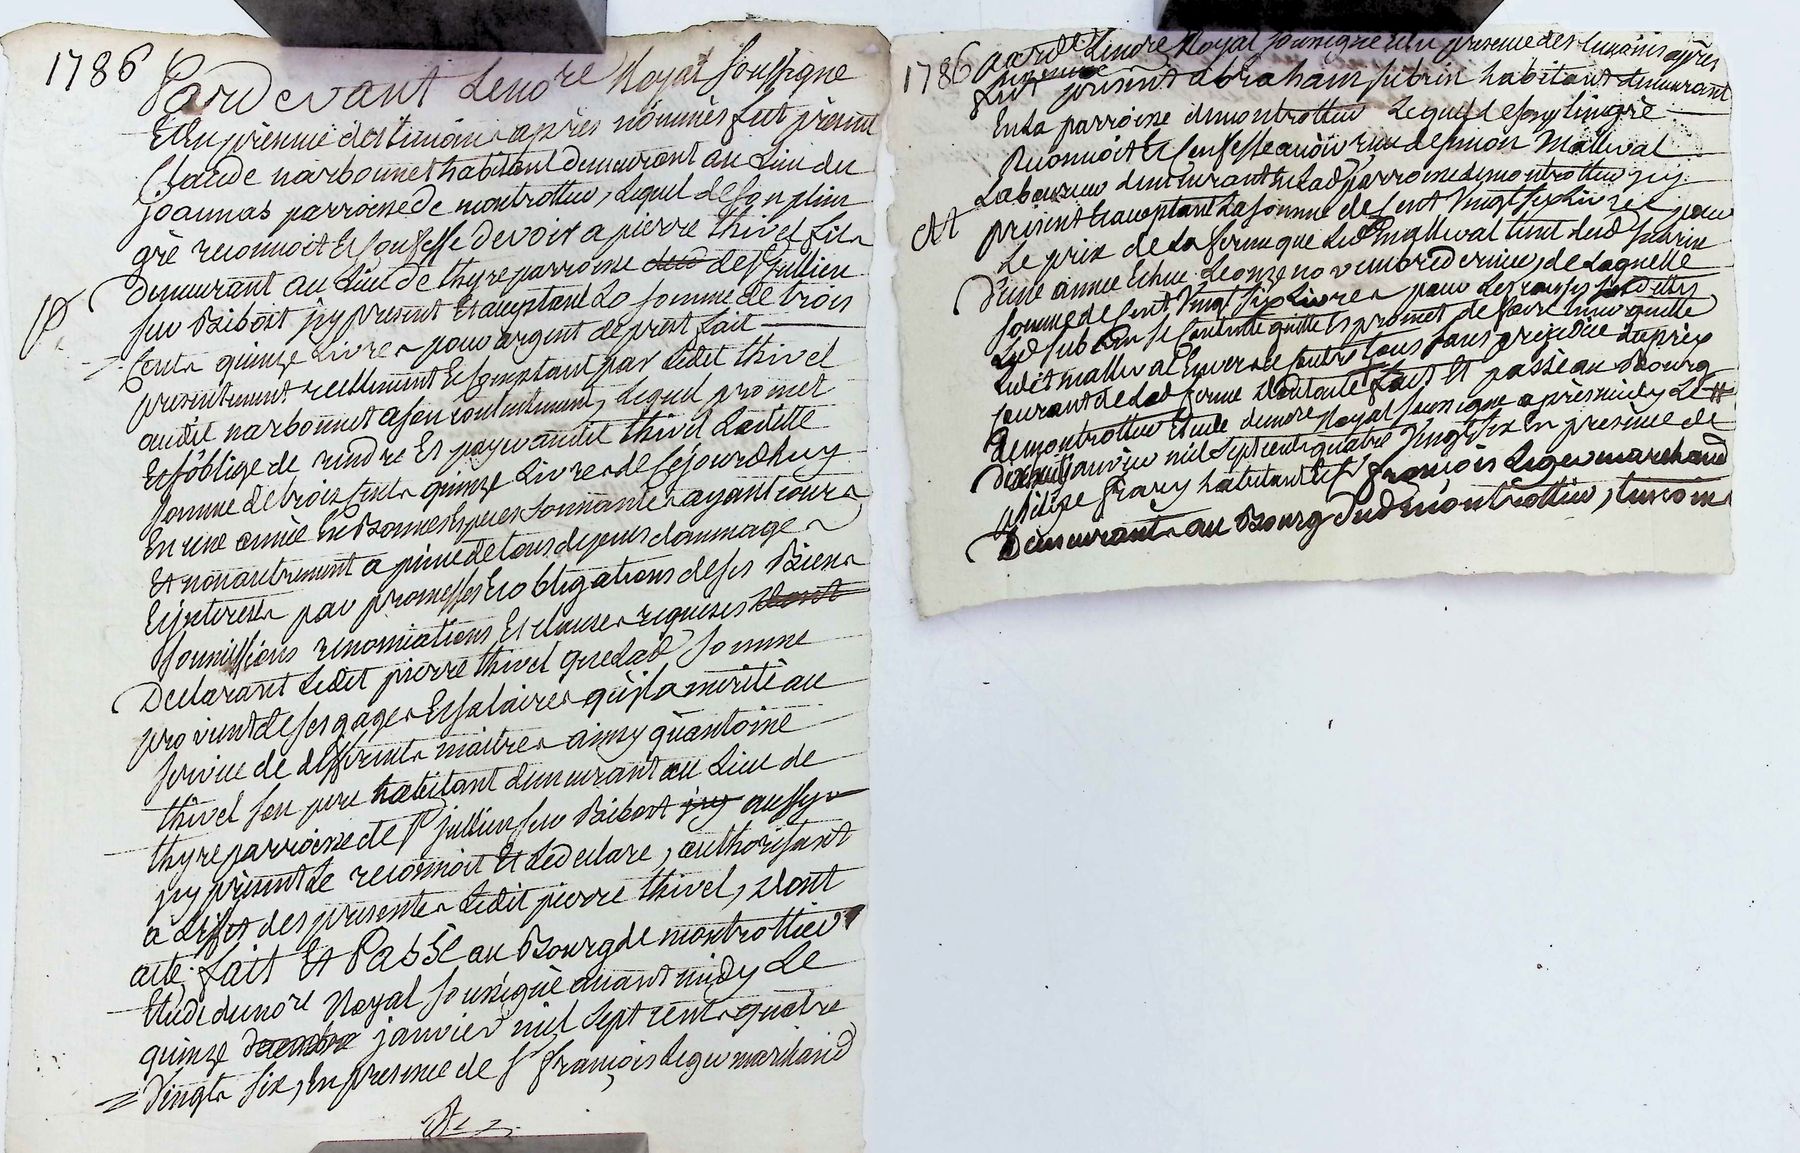 1786
Pardevant Le no.re Royal soussigné
Et En présence des témoins après nommés fut présent
Claude narbonnet habitant demeurant au Lieu du
joannas parroisse de montrottier, Lequel de son plein
gré reconnoit Et confesse devoir a pierre thivel fils
demeurant au Lieu de thyre parroisse de St jullien
sur Bibost jcy présent Et acceptant La somme de trois
Cents quinze Livres pour argent de prest fait
présentement reellement Et Comptant par Ledit thivel
audit narbonnet a son contentement, Lequel promet
Et s'oblige de rendre Et payer audit thivel Laditte
somme de trois Cents quinze Livres de Cejourdhuy
En une année En Bonnes Especes sonnantes ayant cours
Et non autrement a peine de tous depens dommages
Et jnterests par promesses Et obligations de ses Biens
soumissions renonciations Et clauses requises dont
Declarant Ledit pierre thivel que lad somme
provient de ses gages Et salaires qu'jl a merité au
service de differents maitres ainsy qu'antoine
thivel son pere habitant demeurant au Lieu de
thyre parroisse de St jullien sur Bibost jcy aussy
jcy présent Le reconnoit Et Le declare, authorisant
à L'effet des présentes Ledit pierre thivel, dont
acte. fait Et Passé au Bourg de montrottier
Etude du no.re Royal soussigné avant midy Le
quinze decembre janvier mil sept cents quatre
vingts six, En présence de Sr françois Leger marchand
1786 pard.t Le no.re Royal soussigné Et En présence des témoins après
fut présent abraham subrin habitant demeurant
En La parroisse de montrottier Lequel de son plein gré
Reconnoit Et Confesse avoir reçu de simon Malleval
Laboureur demeurant En Lad parroisse de montrottier jcy
présent Et acceptant La somme de Cent vingt six Livres pour
Le prix de La ferme que Led malleval tient dud subrin
d'une année Echue Le onze novembre dernier, de Laquelle
somme de Cent vingt six Livres pour Les causes susdittes
Led subrin se Contente quitte Et promet de faire tenir quitte
Ledit malleval Envers Et Contre tous sans préjudice du prix
courant de Lad ferme dont acte fait Et passé au Bourg
de montrottier Etude du no.re Royal soussigné après midy Le
dixhuit janvier mil sept cents quatre vingt six En présence de
philipe frary habitant Et Sr françois Leger marchand
Demeurants au Bourg dud montrottier, temoins